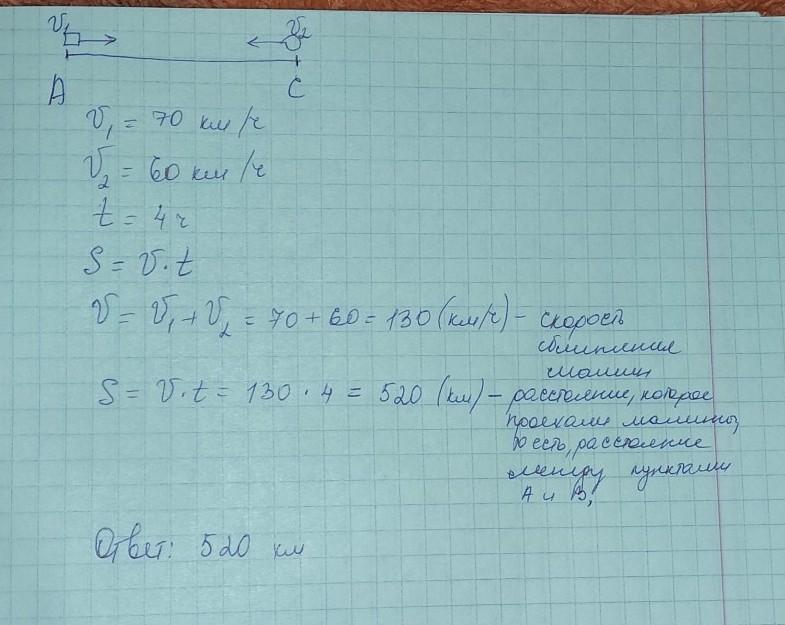 V₁ V₂
A C
V₁ = 70 км/ч
V₂ = 60 км/ч
t = 4 ч
S = V · t
V = V₁ + V₂ = 70 + 60 = 130 (км/ч) – скорость
сближения
машин
S = V · t = 130 · 4 = 520 (км) – расстояние, которое
проехали машины,
то есть, расстояние
между пунктами
A и B,
Ответ: 520 км